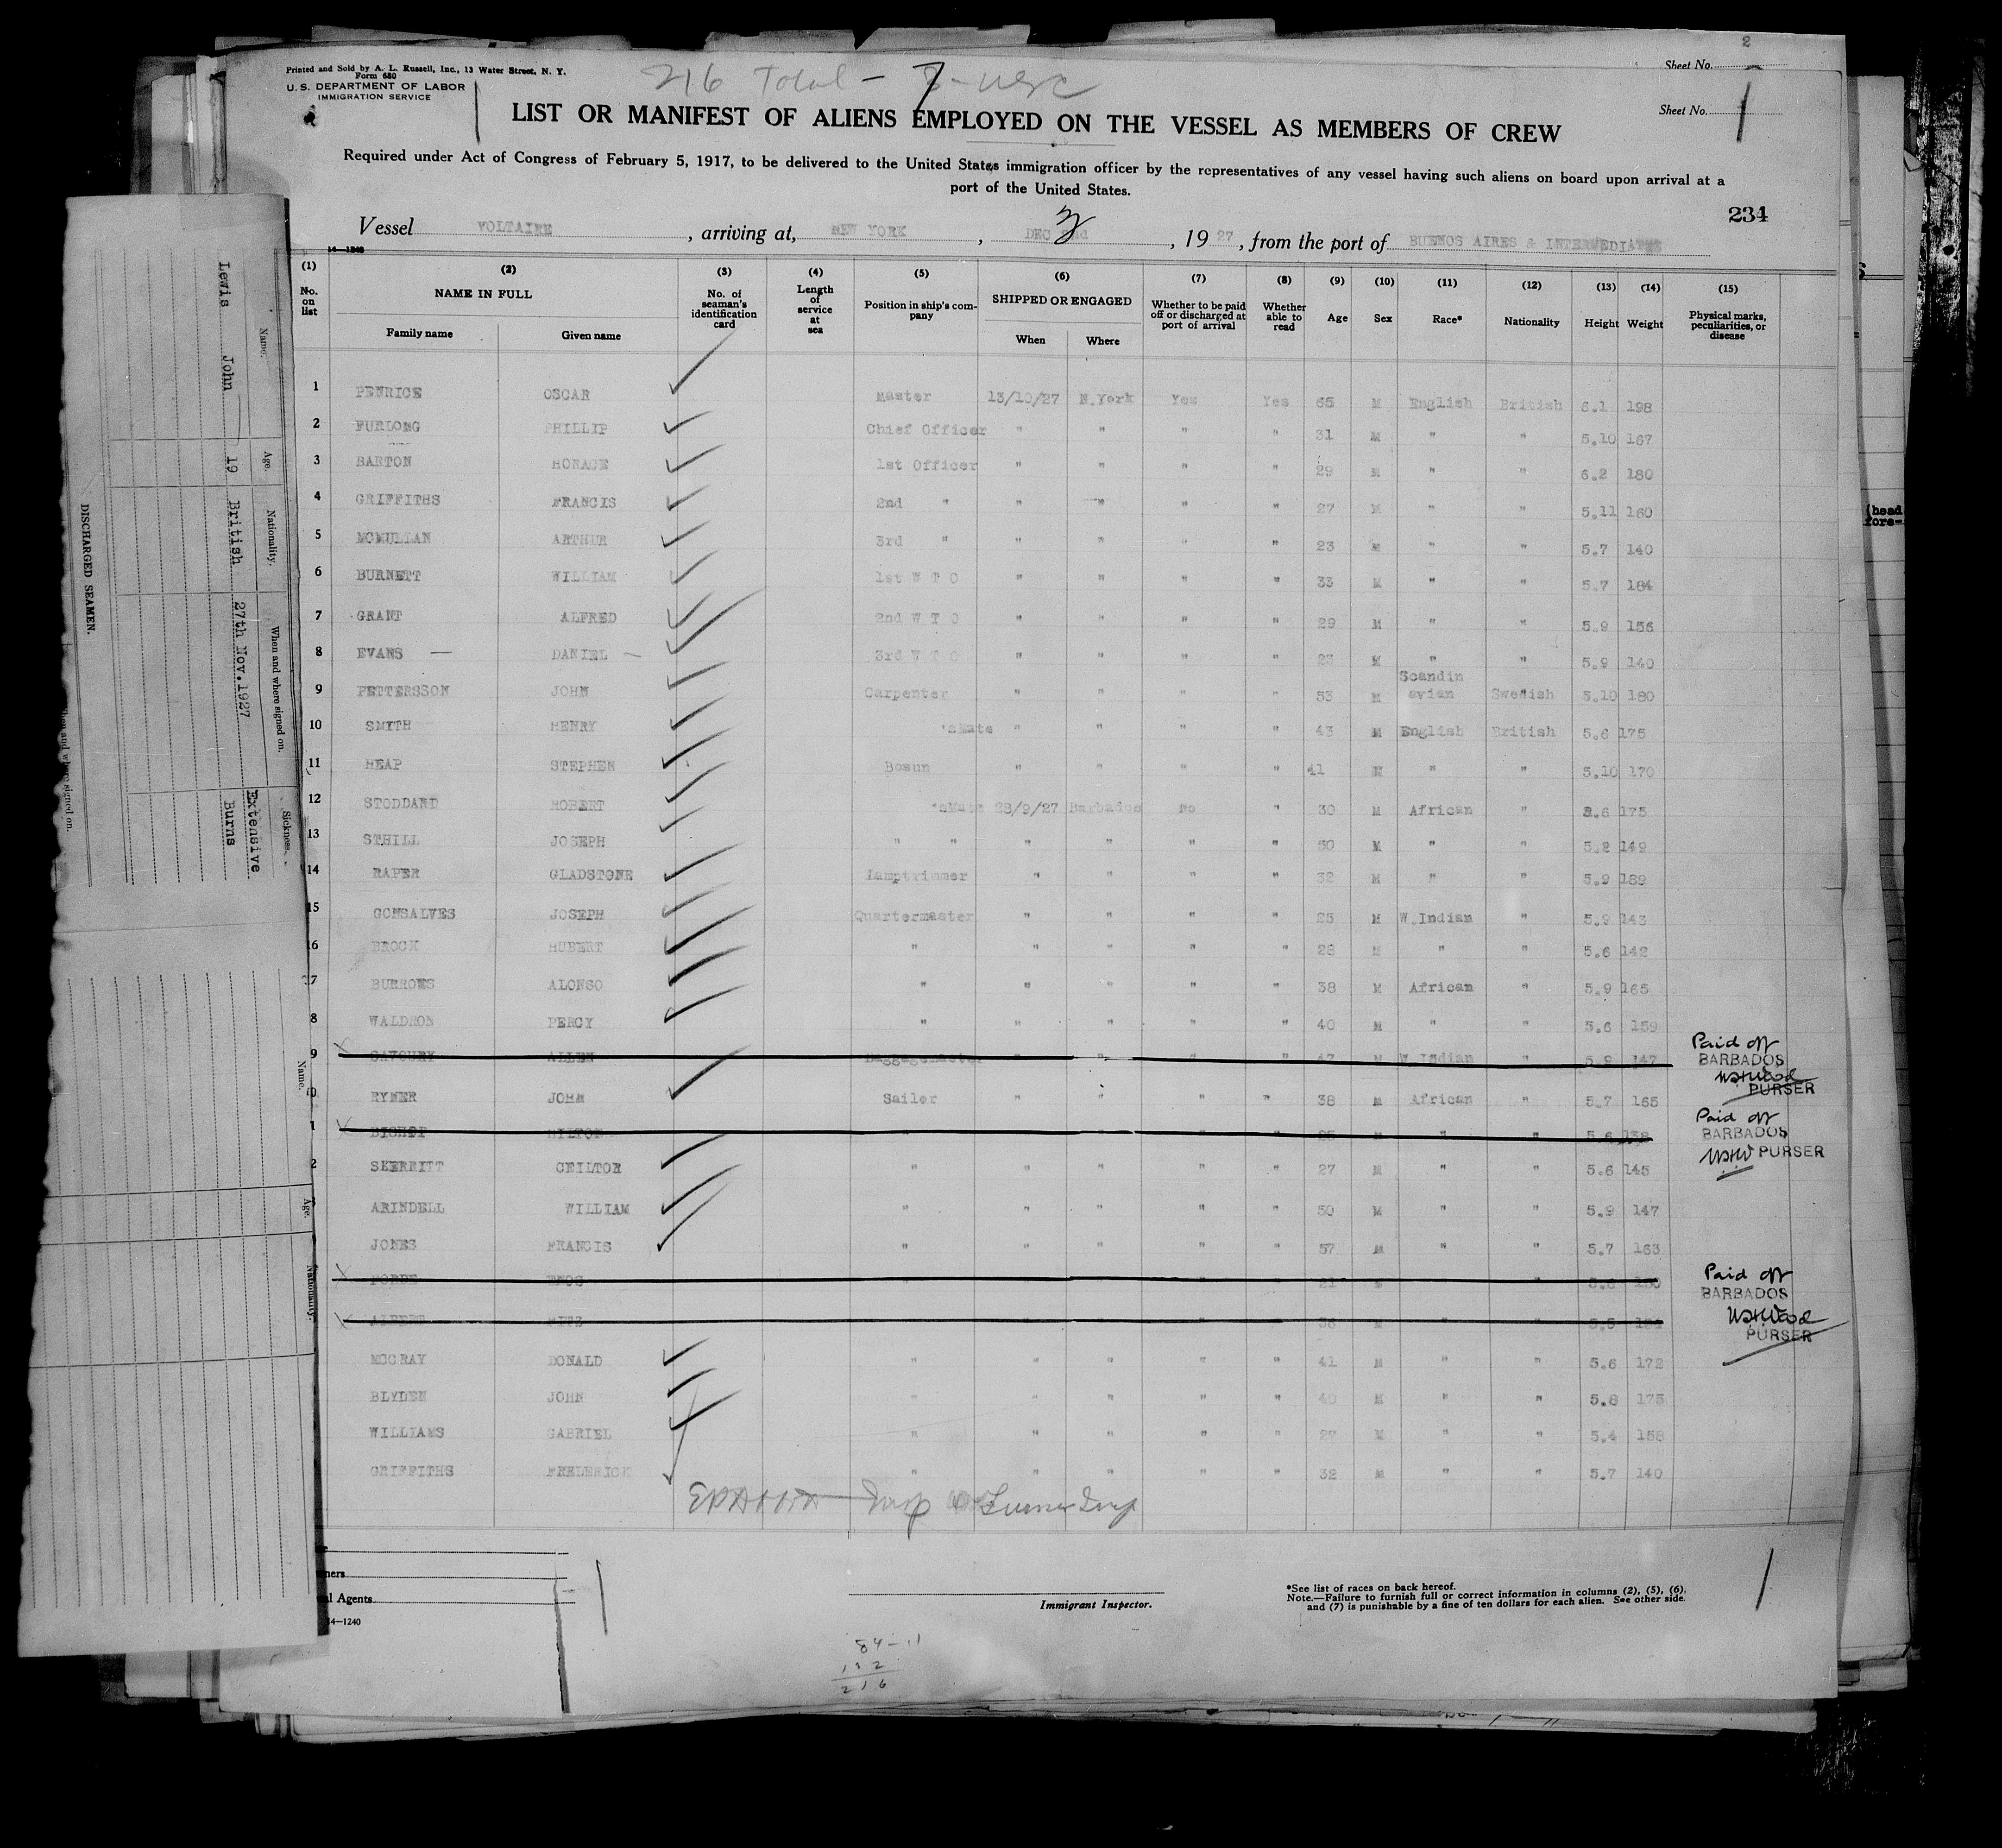 2
Sheet No.
Printed and Sold by A. L. Russell, Inc., 13 Water Street, N. Y.
Form 680
U. S. DEPARTMENT OF LABOR
IMMIGRATION SERVICE
216 Total - 7
Sheet No. 1
LIST OR MANIFEST OF ALIENS EMPLOYED ON THE VESSEL AS MEMBERS OF CREW
Required under Act of Congress of February 5, 1917, to be delivered to the United States immigration officer by the representatives of any vessel having such aliens on board upon arrival at a
port of the United States.
234
Vessel VOLTAIRE, arriving at, NEW YORK, DEC 2nd, 1927, from the port of BUENOS AIRES & INTERMEDIATES
14—1240
(1) (2) (3) (4) (5) (6) (7) (8) (9) (10) (11) (12) (13) (14) (15)
No. on list NAME IN FULL No. of seaman's identification card Length of service at sea Position in ship's company SHIPPED OR ENGAGED Whether to be paid off or discharged at port of arrival Whether able to read Age Sex Race* Nationality Height Weight Physical marks, peculiarities, or disease
Family name Given name When Where
1 PENRICE OSCAR Master 13/10/27 N.York Yes Yes 65 M English British 6.1 198
2 FURLONG PHILLIP Chief Officer " " " " 31 M " " 5.10 167
3 BARTON HORACE 1st Officer " " " " 29 M " " 6.2 180
4 GRIFFITHS FRANCIS 2nd " " " " " 27 M " " 5.11 160
5 MCMULLAN ARTHUR 3rd " " " " " 23 M " " 5.7 140
6 BURNETT WILLIAM 1st W T O " " " " 33 M " " 5.7 184
7 GRANT ALFRED 2nd W T O " " " " 29 M " " 5.9 156
8 EVANS — DANIEL — 3rd W T O " " " " 23 M " " 5.9 140
9 PETTERSSON JOHN Carpenter " " " " 53 M Scandinavian Swedish 5.10 180
10 SMITH HENRY 'sMate " " " 43 M English British 5.6 175
11 HEAP STEPHEN Bosun " " " " 41 M " " 5.10 170
12 STODDARD ROBERT 'sMate 28/9/27 Barbados No " 30 M African " 5.6 175
13 STHILL JOSEPH " " " " " " 50 M " " 5.2 149
14 RAPER GLADSTONE Lamptrimmer " " " " 32 M " " 5.9 189
15 GONSALVES JOSEPH Quartermaster " " " " 25 M W.Indian " 5.9 143
16 BROCK HUBERT " " " " " 28 M " " 5.6 142
17 BURROWES ALONSO " " " " " 38 M African " 5.9 165
8 WALDRON PERCY " " " " " 40 M " " 5.6 159
9 SAVOURY ALLEN Baggagemaster " " " " 47 M W Indian " 5.9 147 Paid off BARBADOS PURSER
0 RYMER JOHN Sailor " " " " 38 M African " 5.7 165
1 BISHOP " " " " " 25 M " " 5.6 138 Paid off BARBADOS PURSER
2 SKERRITT CHILTON " " " " " 27 M " " 5.6 145
ARINDELL WILLIAM " " " " " 50 M " " 5.9 147
JONES FRANCIS " " " " " 57 M " " 5.7 163
FORDE ENOS 21 Paid off BARBADOS
ALBERT 36 M PURSER
MCCRAY DONALD " " " " " 41 M " " 5.6 172
BLYDEN JOHN " " " " " 40 M " " 5.8 173
WILLIAMS GABRIEL " " " " " 27 M " " 5.4 158
GRIFFITHS FREDERICK " " " " " 32 M " " 5.7 140
Immigrant Inspector.
*See list of races on back hereof.
Note.—Failure to furnish full or correct information in columns (2), (5), (6),
and (7) is punishable by a fine of ten dollars for each alien. See other side.
ners
l Agents
14—1240
84-11
132
216
DISCHARGED SEAMEN.
Name. Age. Nationality. When and where signed on. Sickness.
Lewis John 19 British 27th Nov. 1927 Extensive Burns
Name. Age. Nationality.
(head
fore-